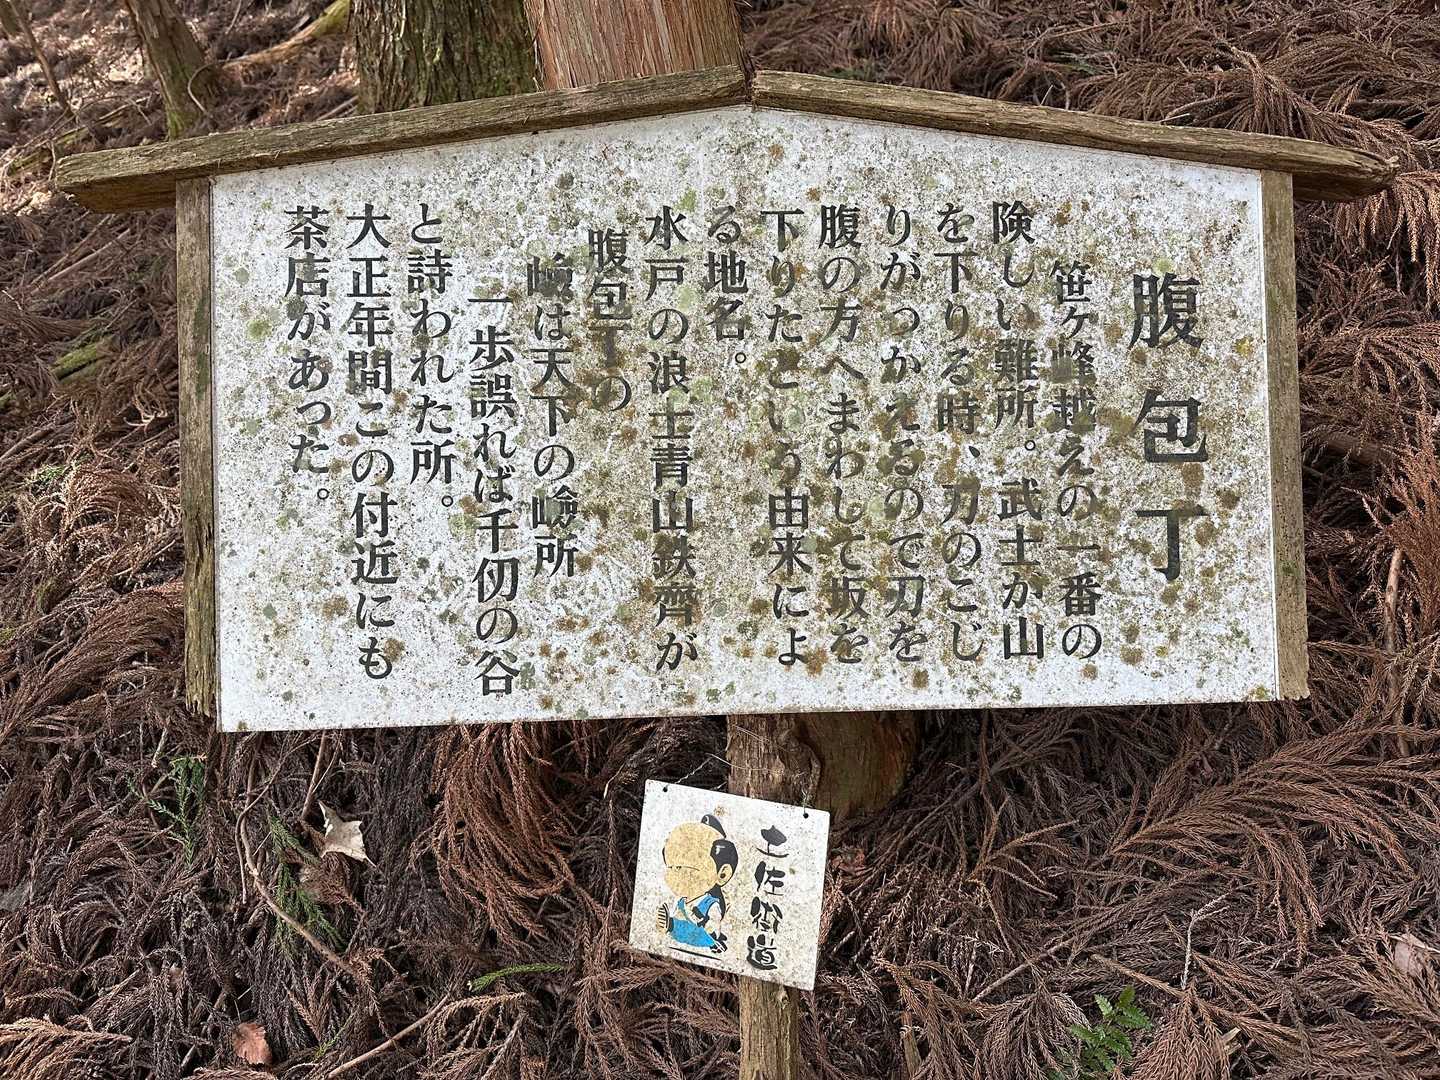 腹包丁
笹ヶ峰越えの一番の
険しい難所。武士か山
を下りる時、刀のこじ
りがつかえるので刀を
腹の方へまわして坂を
下りたという由来によ
る地名。
水戸の浪士青山鉄齊が
腹包丁の
嶮は天下の嶮所
一歩誤れば千仞の谷
と詩われた所。
大正年間この付近にも
茶店があった。
土佐街道